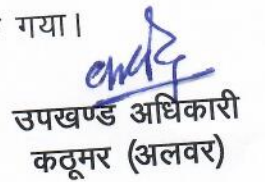 गया।
उपखण्ड अधिकारी
कठूमर (अलवर)